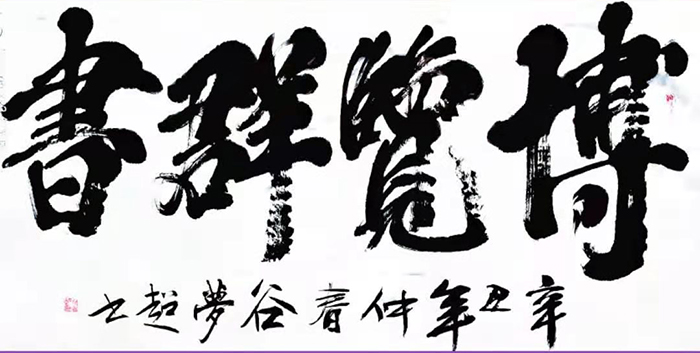 博覽群書
辛丑年仲春谷夢超书